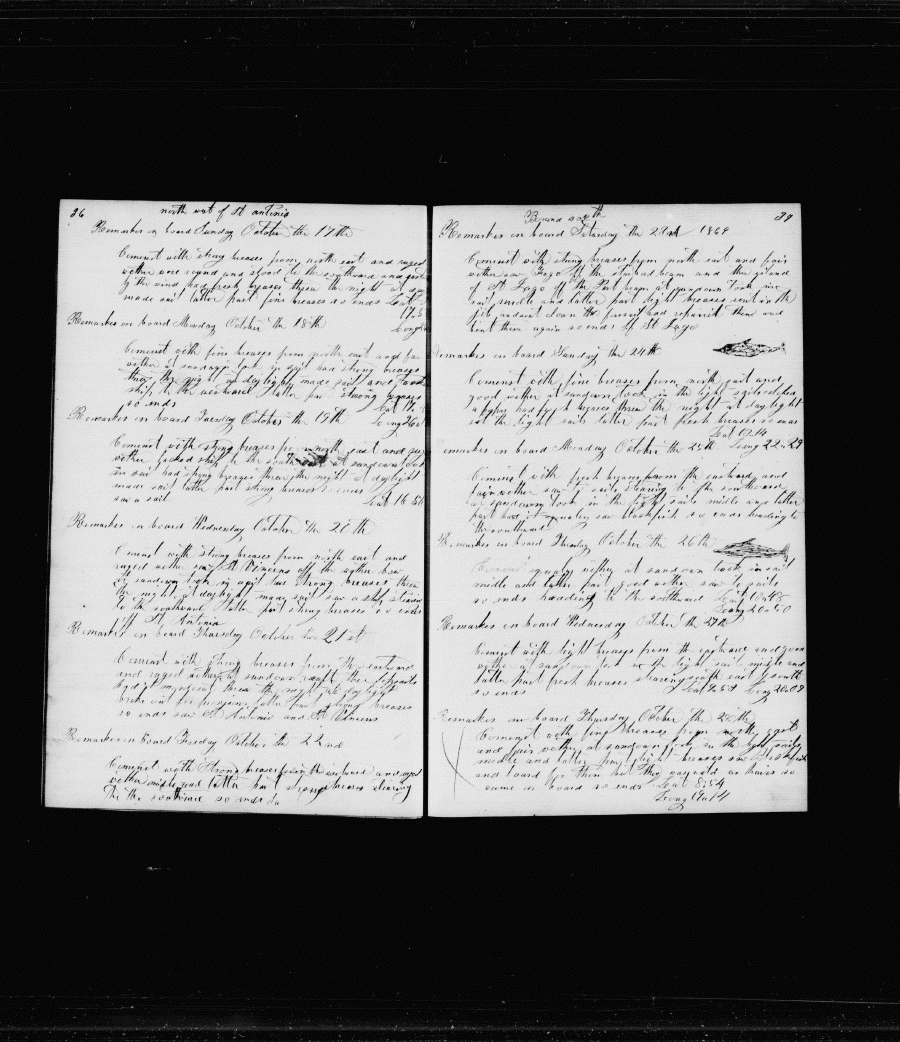 36
north west of St antinio
Remarks on board Sunday October the 17th
Comenst with strong breases from north east and raged
wether wore round and stood to the southward and
by the wind had fresh breases threw the night at
made sail latter part fine breases so ends Lat
17
Long
Remarks on board Monday October the 18th
Comenst with fine breases from north east and
wether at sundown took in sail had strong breases
threw the night at daylight made sail and
ship to the westward latter part strong breases
so ends Lat 17
Remarks on board Tuesday October the 19th Long 26
Comenst with strong breases from north east and
wether tacked ship to the south at sundown took
in sail had strong breases threw the night at daylight
made sail latter part strong breases so ends
saw a sail Lat 16
Remarks on board Wednesday October the 20th
Comenst with strong breases from north east and
raged wether saw St Vincens off the wether bow
at sundown took in sail had strong breases threw
the night at daylight made sail saw a ship stearing
to the southward latter part strong breases so ends
off St Antonia
Remarks on board Thursday October the 21st
Comenst with strong breases from the eastward
and raged wether at sundown
threw the night at daylight
broke out for latter part strong breases
so ends saw St Antonio and St Vincens
Remarks on board Friday October the 22nd
Comenst with strong breases from the eastward and raged
wether middle and latter part strong breases stearing
to the southward so ends
39
Bound south
Remarks on board Saturday the 23rd 1869
Comenst with strong breases from north east and fair
wether saw Fogo off the starbord beam and the island
of St Iago off the Port beam at sundown took in
sail middle and latter part light breases sent in the
jib and sent down the had repaired them and
bent them again so ends off St Iago
Remarks on board Sunday the 24th
Comenst with fine breases from north east and
good wether at sundown took in the light sails
had fresh breases threw the night at daylight
set the light sails latter part fresh breases so ends
Lat 12.14
Remarks on board Monday October the 25th Long 22.29
Comenst with fresh breases from the eastward and
fair wether saw 2 sails stearing to the southward
at sundown took in the light sails middle and latter
part had it squaley saw blackfish so ends heading to
the southward
Remarks on board Tuesday October the 26th
Comenst squaley wether at sundown took in sail
midle and latter part good wether saw to sails
so ends heading to the southward Lat 10.48
Long 20.50
Remarks on board Wednesday October the 27th
Comenst with light breases from the eastward and good
wether at sundown took in the light sail middle and
latter part fresh breases stearing south east & south
so ends Lat 9.59 Long 20.09
Remarks on board Thursday October the 28th
Comenst with fine breases from north east
and fair wether at sundown took in the light sails
middle and latter part light breases saw blackfish
and loard for them but they so
came on board so ends Lat 8.54
Long 19.14